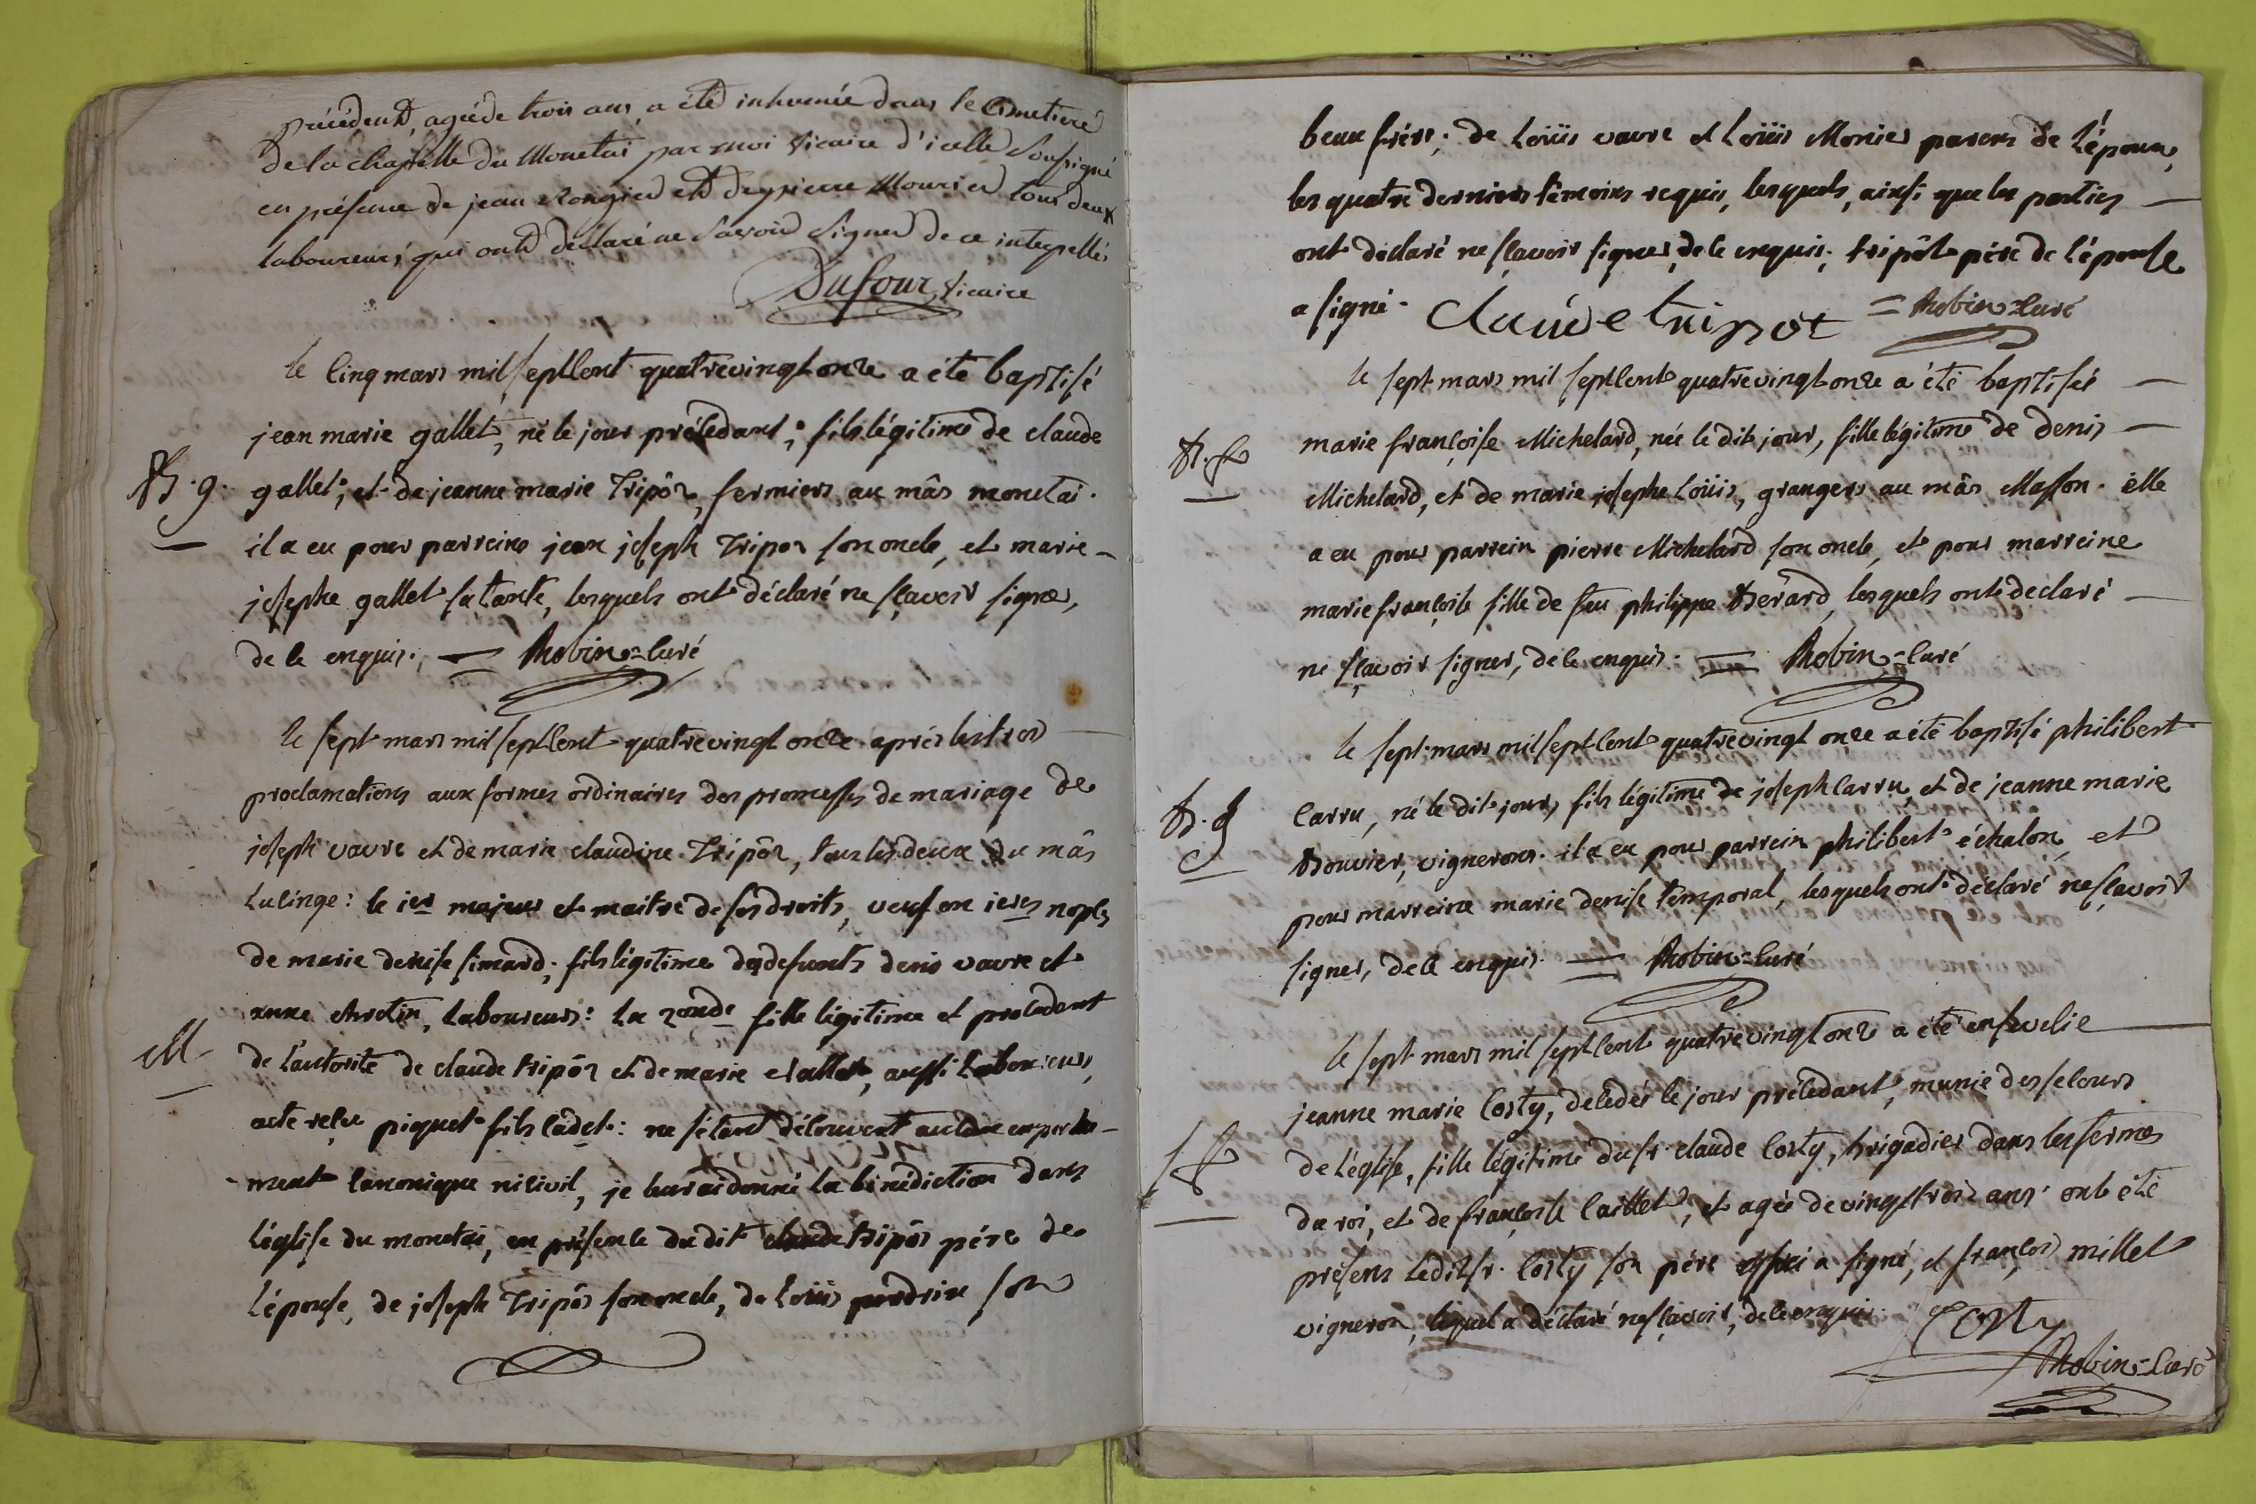 précédent, agée de trois ans, a été inhumée dans le Cimetiere
de la chapelle du Monetai par moi vicaire d'icelle soussigné
en présence de jean et de pierre Mourier tous deux
laboureurs, qui ont déclaré ne savoir signer de ce interpellés
Dufour, vicaire
le Cinq mars mil septCent quatrevingt onze a été baptisé
jean marie gallet, né le jour préCedant; fils légitime de claude
B. g. gallet, et de jeanne marie Tripôz, fermiers au mâs monetai.
il a eu pour parrein jean joseph Tripoz son oncle, et marie-
josephe gallet sa tante, lesquels ont déclaré ne sçavoir signer,
de le enquis. = Robin=Curé
le sept mars mil septCent quatrevingt onze après les trois
proclamations aux formes ordinaires des promesses de mariage de
joseph vavre et de marie claudine Tripôz, tous les deux du mâs
Lulinge: le ier majeur et maitre de ses droits, veuf en ieres nopces
de marie denise simard; fils légitime des defunts denis vavre et
anne chretin, Laboureurs: La 2onde fille légitime et procedant
M de L'autorité de claude tripôz et de marie vallet, aussi Laboureurs,
acte reçu piquet fils Cadet: ne s'étant découvert aucun empeche-
ment Canonique ni Civil, je leur ai donné la bénédiction dans
L'église du monetai, en présence dudit claude tripôz père de
L'épouse, de joseph Tripôz son oncle, de Loüis perdrix son
beau frère; de Loüis vavre et Loüis Monier parens de L'époux,
les quatre derniers témoins requis, lesquels, ainsi que les parties
ont déclaré ne sçavoir signer, de le enquis; tripôt père de l'épouse
a signé. Claude tripot = Robin=Curé
le sept mars mil septCent quatrevingt onze a été baptisée
marie françoise Michelard, née le dit jour, fille légitime de denis
B. f. Michelard, et de marie josephe Loüis, grangers au mâs Masson. elle
a eu pour parrein pierre Michelard son oncle, et pour marreine
marie françoise fille de feu philippe Bérard, lesquels ont déclaré
ne sçavoir signer, de le enquis. = Robin=Curé
le sept mars mil septCent quatrevingt onze a été baptisé philibert
B. g Carru, né le dit jour, fils légitime de joseph Carru, et de jeanne marie
Bouvier, vignerons. il a eu pour parrein philibert échalon, et
pour marreine marie denise temporal, lesquels ont déclaré ne sçavoir
signer, de le enquis. = Robin=Curé
le sept mars mil septCent quatrevingt onze a été ensevelie
jeanne marie Costy, déCedée le jour préCedant, munie des seCours
S f de L'église, fille légitime du sr. claude Costy, brigadier dans les fermes
du roi, et de françoise Caillet, et agée de vingt trois ans. ont été
présens Ledit sr. Costy son père qui a signé, et françois millet
vigneron, lequel a déclaré ne sçavoir, de le enquis. Costy
Robin=Curé